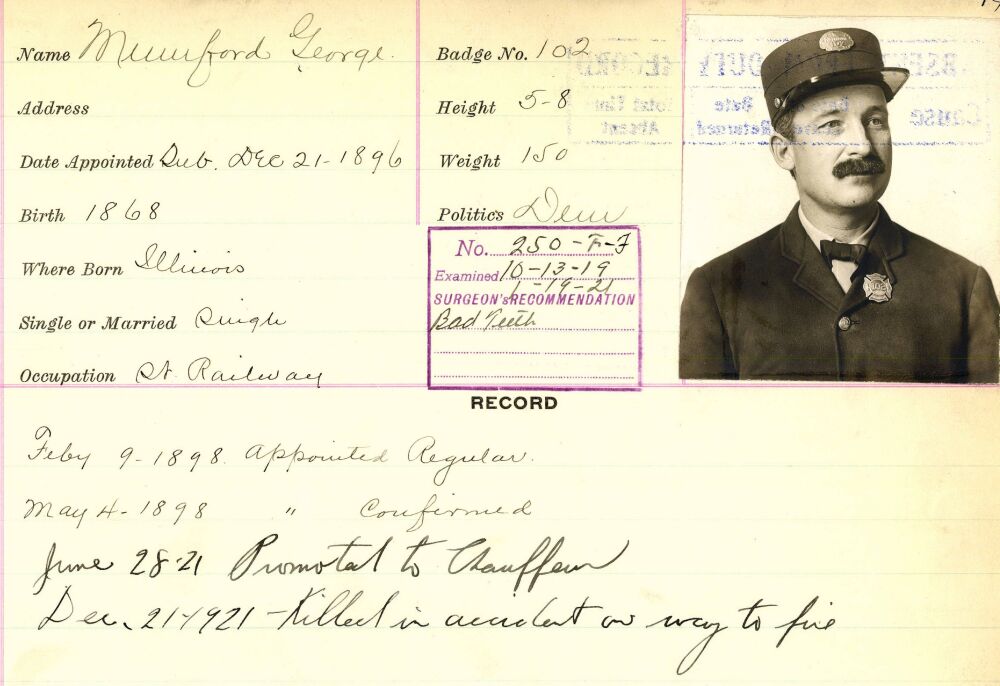 Name Mumford George.
Address
Date Appointed Sub. Dec 21-1896
Birth 1868
Where Born Illinois
Single or Married Single
Occupation St. Railway
Badge No. 102
Height 5-8
Weight 150
Politics Dem
No. 250-F-F
Examined 10-13-19
1-19-21
SURGEON'S RECOMMENDATION
Bad Teeth
ABSENT FROM DUTY RECORD
Cause Date Date Returned Total Time Absent
102
RECORD
Feby 9-1898. Appointed Regular.
May 4-1898 " Confirmed
June 28-21 Promoted to Chauffeur
Dec. 21-1921-Killed in accident on way to fire